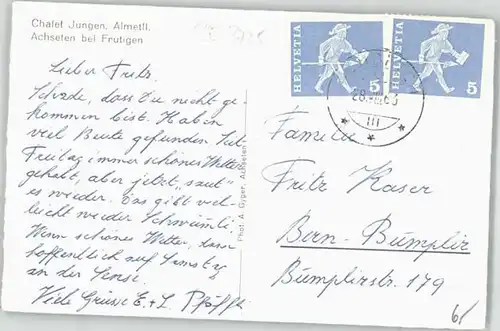 Chalet Jungen, Almetli.
Achseten bei Frutigen
Lieber Fritz.
Schade, dass Du nicht ge-
kommen bist. Haben
viel Beute gefunden Seit
Freitag immer schönes Wetter
gehabt, aber jetzt „saut"
es wieder. Das gibt viel-
leicht wieder Schwümli.
Wenn schönes Wetter, dann
hoffentlich auf Samstag
an der Sense.
Viele Grüsse E. + L.
Phot. A. Gyger, Adelboden
HELVETIA 5
HELVETIA 5
III
Familie
Fritz Kaser
Bern-Bümpliz
Bümplizstr. 179
6/